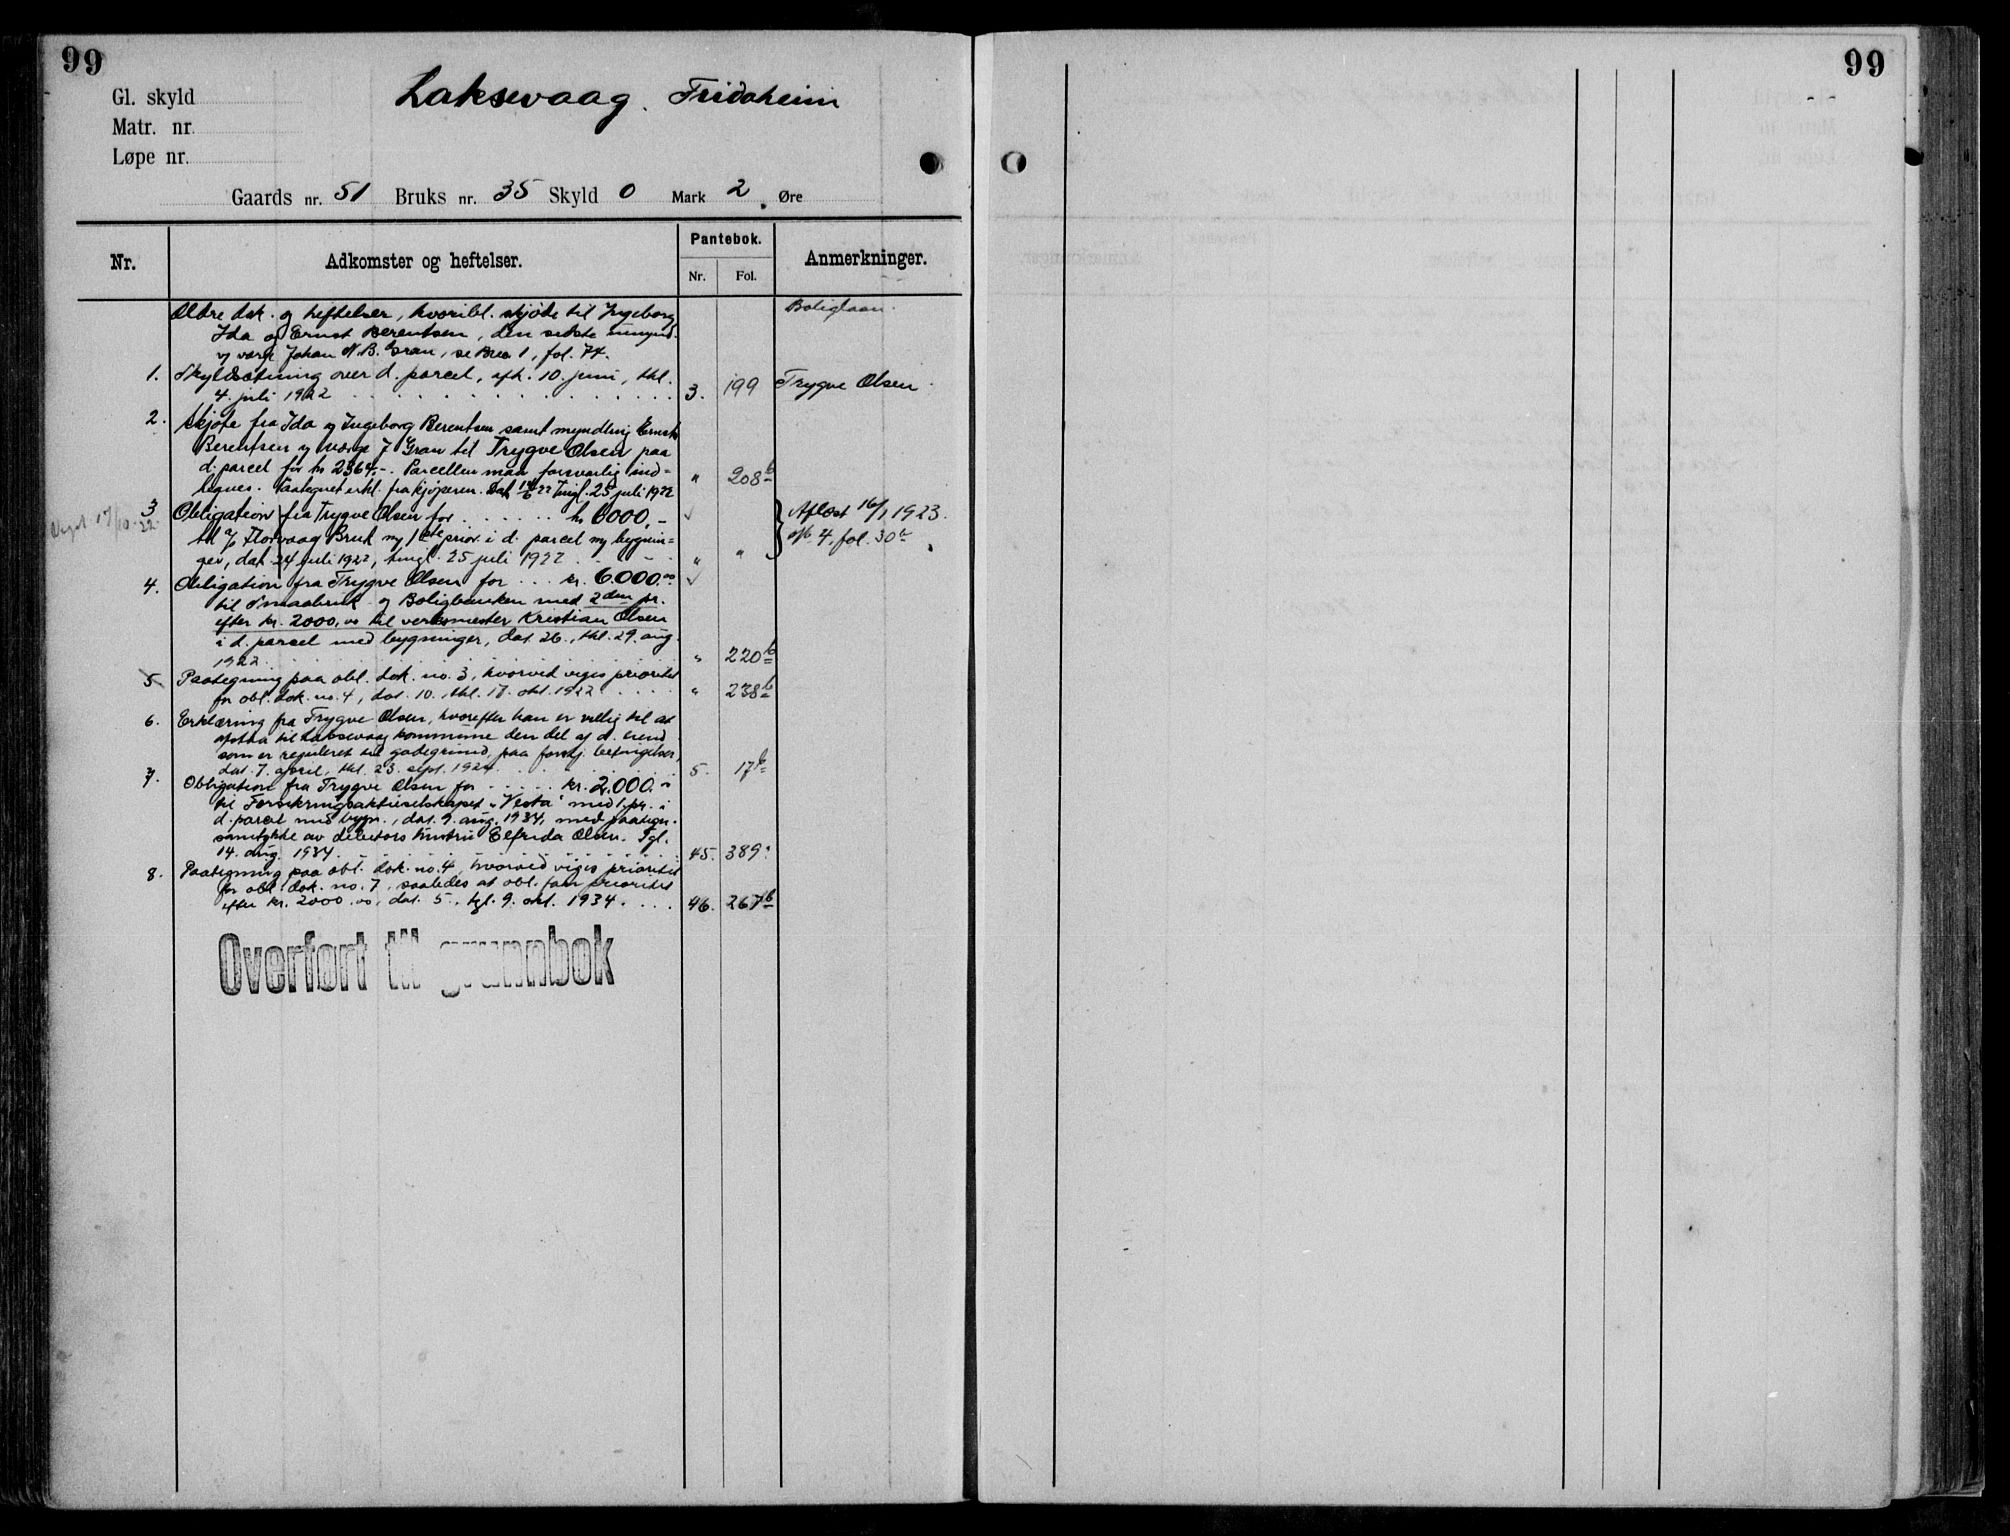 99
99
Gl. skyld
Laksevaag. Fridaheim
Matr. nr.
Løpe nr.
Gaards nr. 51 Bruks nr. 35 Skyld 0 Mark 2 Øre
Nr. Adkomster og heftelser. Pantebok. Anmerkninger.
Nr. Fol.
Ældre dok. og heftelser, hvoribl. skjøte til Ingeborg Boliglaan.
Ida og Ernst Berentsen, den sidste umynd.
v/ værge Johan N. B. Gran, se Bres 1, fol. 74.
1. Skyldsetning over d. parcel, afh. 10. juni, thl.
4. juli 1922 3. 199 Trygve Olsen.
2. Skjøte fra Ida og Ingeborg Berentsen samt myndling Ernst
Berentsen v/ værge J Gran til Trygve Olsen paa
d. parcel for kr 2364,-. Parcellen maa forsvarlig ind-
hegnes. Paategnet erkl. fra kjøperen. Dat 14/6 22 Tingl. 25 juli 1922 " 208 b
3 Obligation fra Trygve Olsen for kr 6000,-
Aflæst 16/1 1923.
Veget 17/10-22
til A/S Florvaag Bruk m/ 1ste prior. i d. parcel m/ bygnin-
pb. 4, fol. 30 a
ger, dat. 24 juli 1922, tingl. 25 juli 1922 " "
4. Obligation fra Trygve Olsen for ... kr. 6000.00
til Smaabruk og Boligbanken med 2den pr.
efter kr. 2000,00 til verksmester Kristian Olsen
i d. parcel med bygninger, dat. 26., thl. 29. aug.
1922. " 220 b
5 Paategning paa obl. dok. no. 3, hvorved viges prioritet
for obl. dok. no. 4, dat. 10., thl. 17. okt. 1922 " 238 b
6. Erklæring fra Trygve Olsen, hvorefter han er villig til at
afstaa til Laksevaag kommune den del af d. eiend.
som er reguleret til gadegrund, paa forskj. betingelser,
dat. 7. april, thl. 23. sept. 1924. 5. 17 b
7. Obligation fra Trygve Olsen for kr. 2.000.00
til Forsikringsaktieselskapet "Vesta" med 1. pr. i
d. parcel med bygn., dat. 9. aug. 1934, med paategn.
samtykke av debitors hustru Elfrida Olsen. Tgl.
14. aug. 1934. 45. 389.
8. Paategning paa obl. dok. no. 4, hvorved viges prioritet
for obl. dok. no. 7, saaledes at obl. faar prioritet
efter kr. 2000.00, dat. 5., tgl. 9. okt. 1934. 46. 267 b
Overført til grunnbok